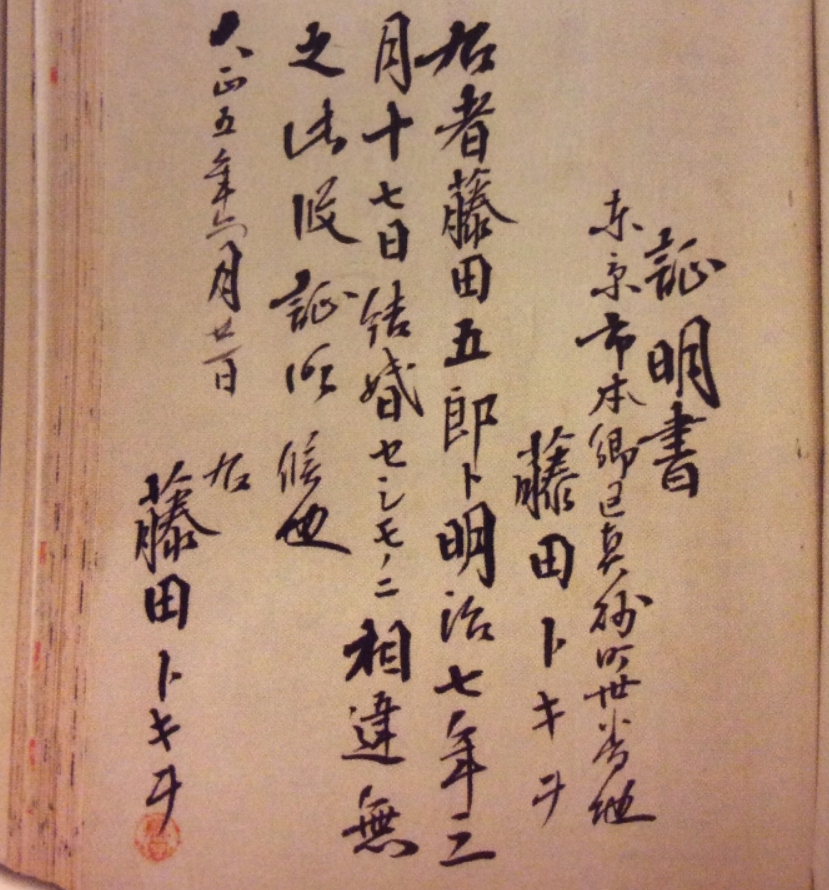 証明書
東京市本郷区真砂町卅番地
藤田トキヲ
右者藤田五郎ト明治七年二
月十七日結婚セシモノニ相違無
之此段証明候也
大正五年六月廿一日
右
藤田トキヲ